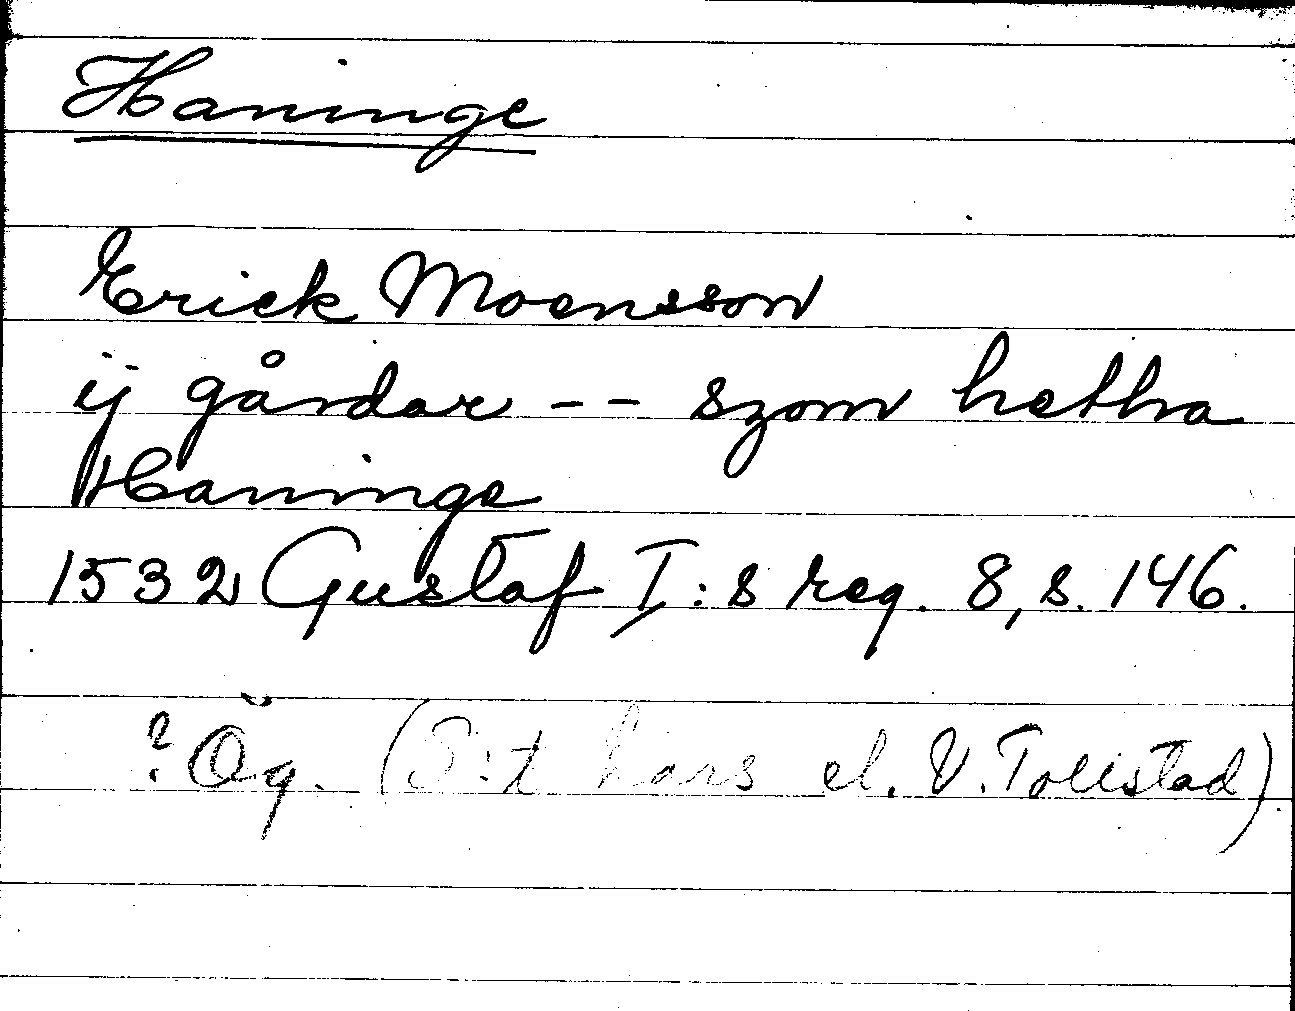 Haninge
Erick Moensson
ij gårdar -- szom hetha
Haninge
1532 Gustaf I:s reg. 8, s. 146.
? Ög. (S:t Lars el. V. Tollstad)